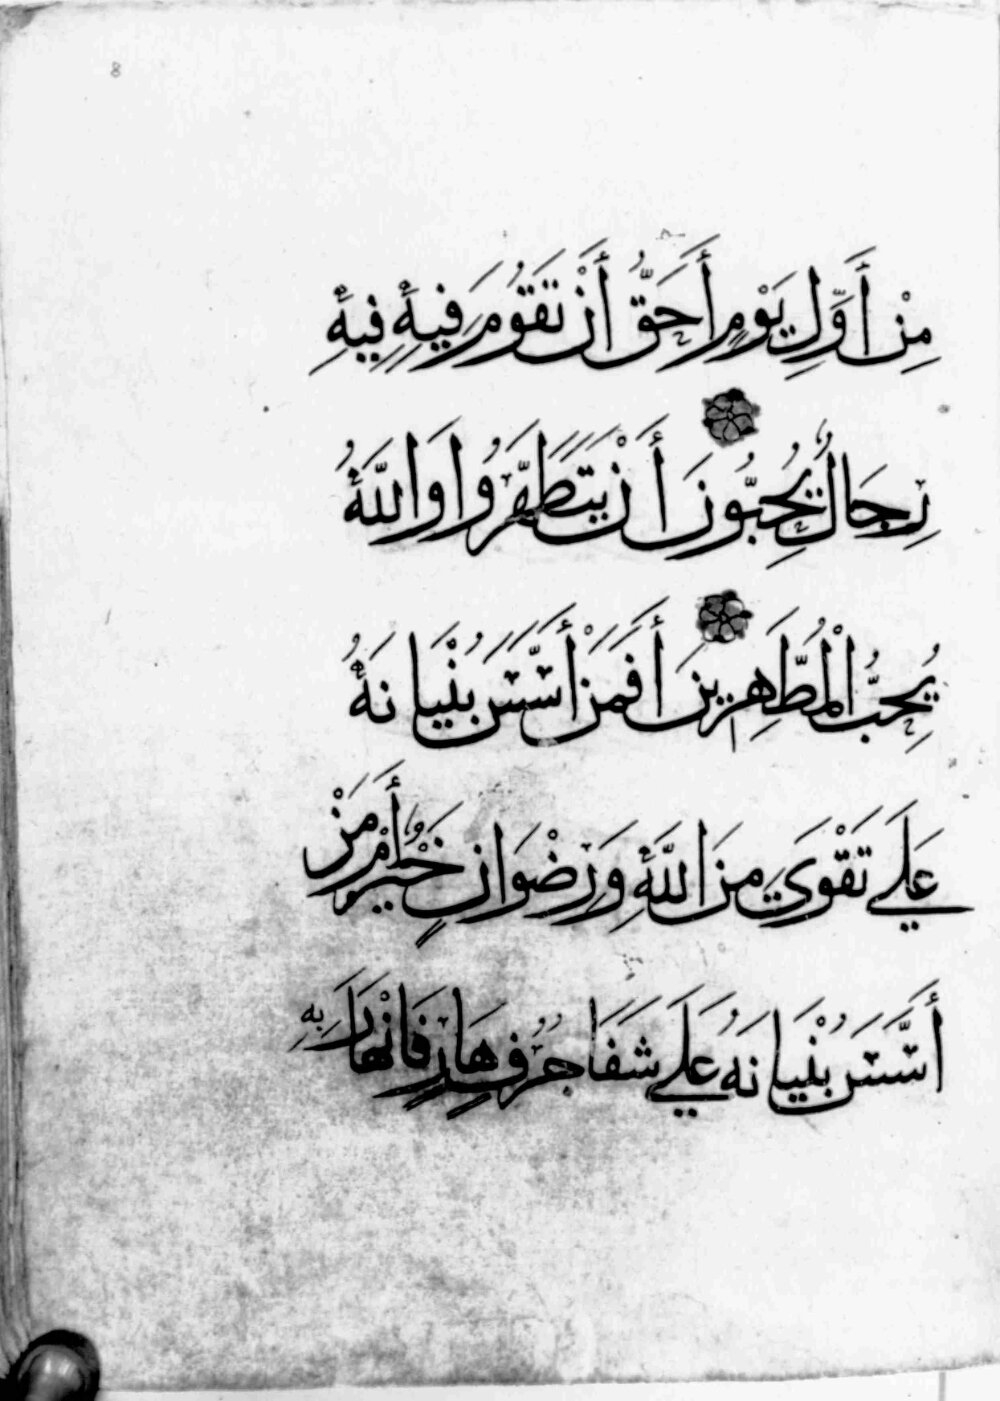 8
مِنْ أَوَّلِ يَوْمٍ أَحَقُّ أَنْ تَقُومَ فِيهِ فِيهِ
رِجَالٌ يُحِبُّونَ أَنْ يَتَطَهَّرُوا وَاللَّهُ
يُحِبُّ الْمُطَّهِرِينَ أَفَمَنْ أَسَّسَ بُنْيَانَهُ
عَلَى تَقْوَى مِنَ اللَّهِ وَرِضْوَانٍ خَيْرٌ أَمْ مَنْ
أَسَّسَ بُنْيَانَهُ عَلَى شَفَا جُرُفٍ هَارٍ فَانْهَارَ بِهِ